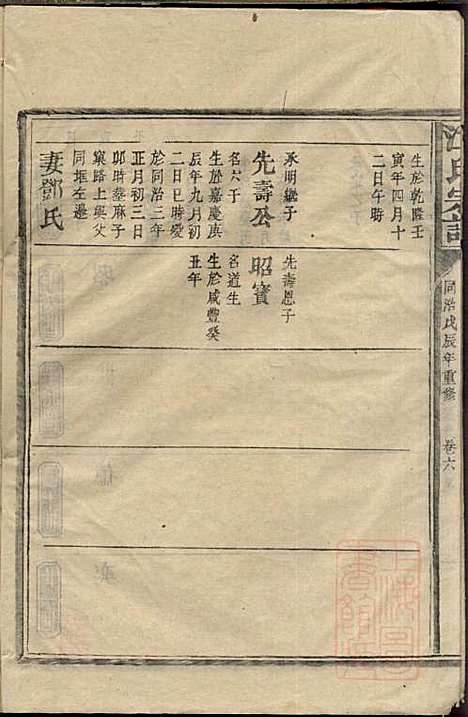 氏宗譜
同治戊辰年重修
卷六
生於乾隆壬
寅年四月十
二日午時
承明繼子
先壽公
名六子
生於嘉慶庚
辰年九月初
二日巳時歿
於同治三年
正月初三日
卯時塟麻子
窠路上與父
同堆左邊
妻鄧氏
先壽恩子
昭寶
名道生
生於咸豐癸
丑年